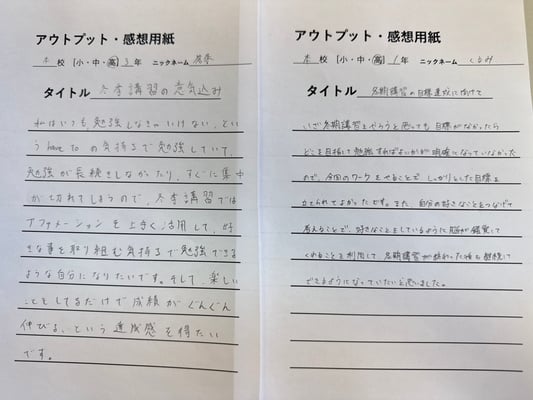 アウトプット・感想用紙
本 校 [小・中・高] 3 年 ニックネーム
タイトル 冬季講習の意気込み
私はいつも勉強しなきゃいけない、とい
う have to の気持ちで勉強していて、
勉強が長続きしなかったり、すぐに集中
が切れてしまうので、冬季講習では
アファメーションを上手く活用して、好
きな事を取り組む気持ちで勉強できる
ような自分になりたいです。そして、楽しい
ことをしてるだけで成績がぐんぐん
伸びる、という達成感を得たい
です。
アウトプット・感想用紙
本 校 [小・中・高] 1 年 ニックネーム くるみ
タイトル 冬期講習の目標達成に向けて
いざ冬期講習をやろうと思っても目標がなかったら
どこを目指して勉強すればよいかが明確になっていなかった
ので、今回のワークをやることでしっかりとした目標を
立てられてよかったです。また、自分の好きなことをつなげて
考えることで、好きなことをしているように脳が錯覚して
くれることを利用して、冬期講習が終わった後も継続して
できるようになっていたいと思いました。